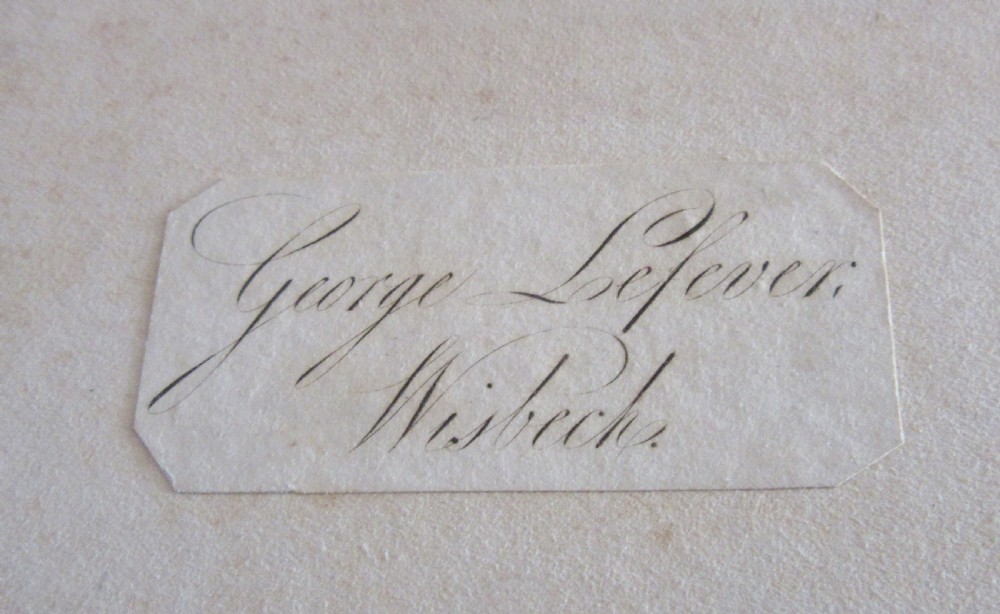 George Lefever.
Wisbech.